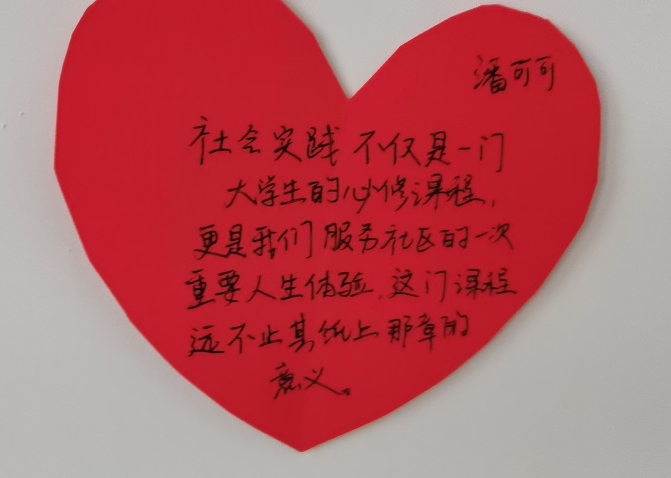 潘可可
社会实践不仅是一门
大学生的必修课程,
更是我们服务社区的一次
重要人生体验,这门课程
远不止其纸上那章的
意义。